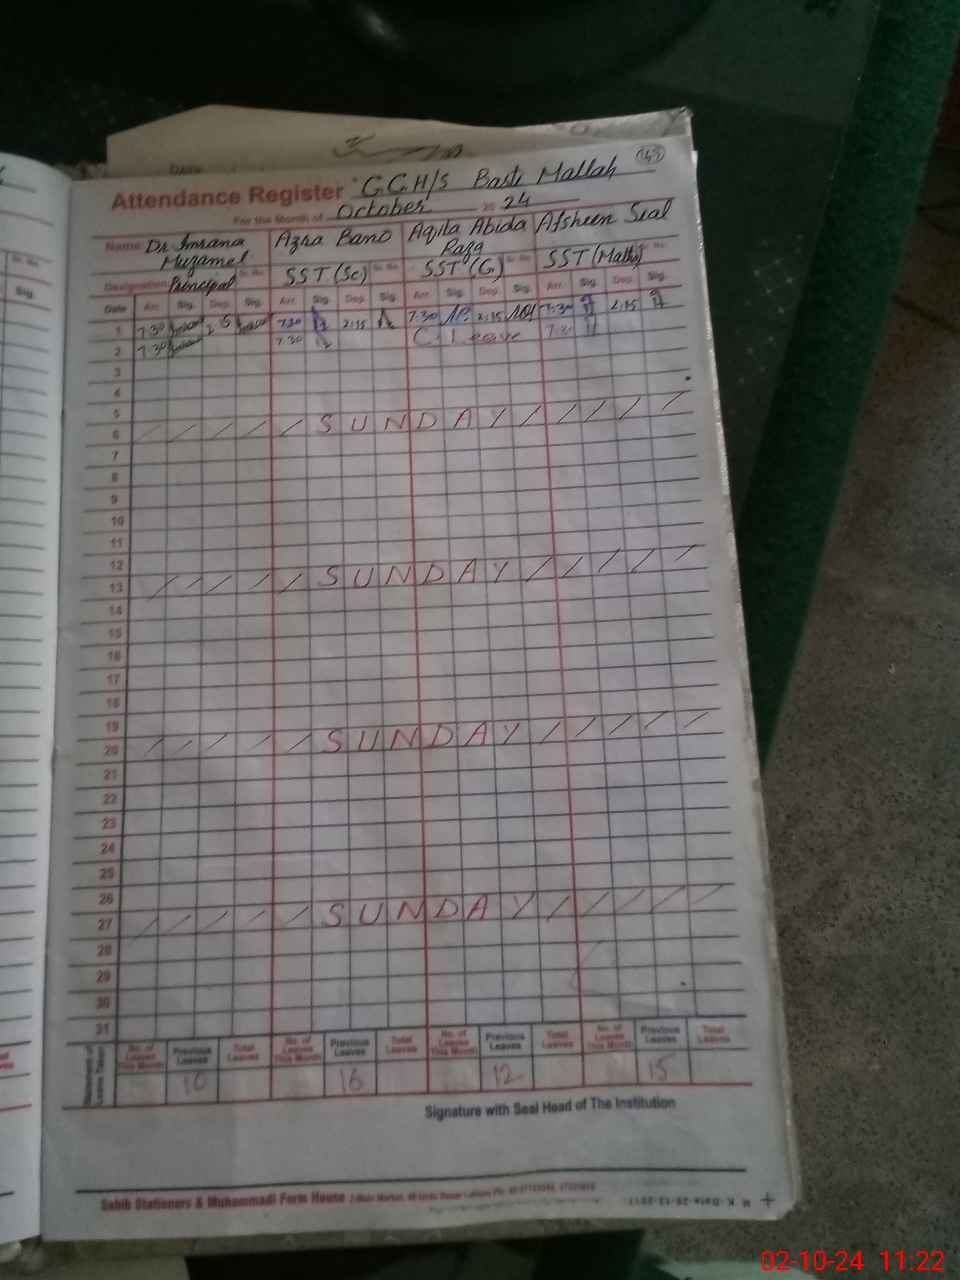 143
Attendance Register G.G.H/S Basti Mallah
For the Month of October 2024
Name Dr Imrana Muzamel Azra Bano Aqila Abida Raza Afsheen Sial
Designation Principal Sr. No. SST (Sc) Sr. No. SST (G) Sr. No. SST (Math) Sr. No.
Date Arr. Sig. Dep. Sig. Arr. Sig. Dep. Sig. Arr. Sig. Dep. Sig. Arr. Sig. Dep. Sig.
1 7:30 7:30 2:15 7:30 2:15 7:30 2:15
2 7:30 7:30 C. Leave 7:30
3
4
5
6 SUNDAY
7
8
9
10
11
12
13 SUNDAY
14
15
16
17
18
19
20 SUNDAY
21
22
23
24
25
26
27 SUNDAY
28
29
30
31
Statement of Leaves Taken No. of Leaves This Month Previous Leaves Total Leaves No. of Leaves This Month Previous Leaves Total Leaves No. of Leaves This Month Previous Leaves Total Leaves No. of Leaves This Month Previous Leaves Total Leaves
10 16 12 15
Signature with Seal Head of The Institution
Sahib Stationers & Muhammadi Form House
02-10-24 11:22